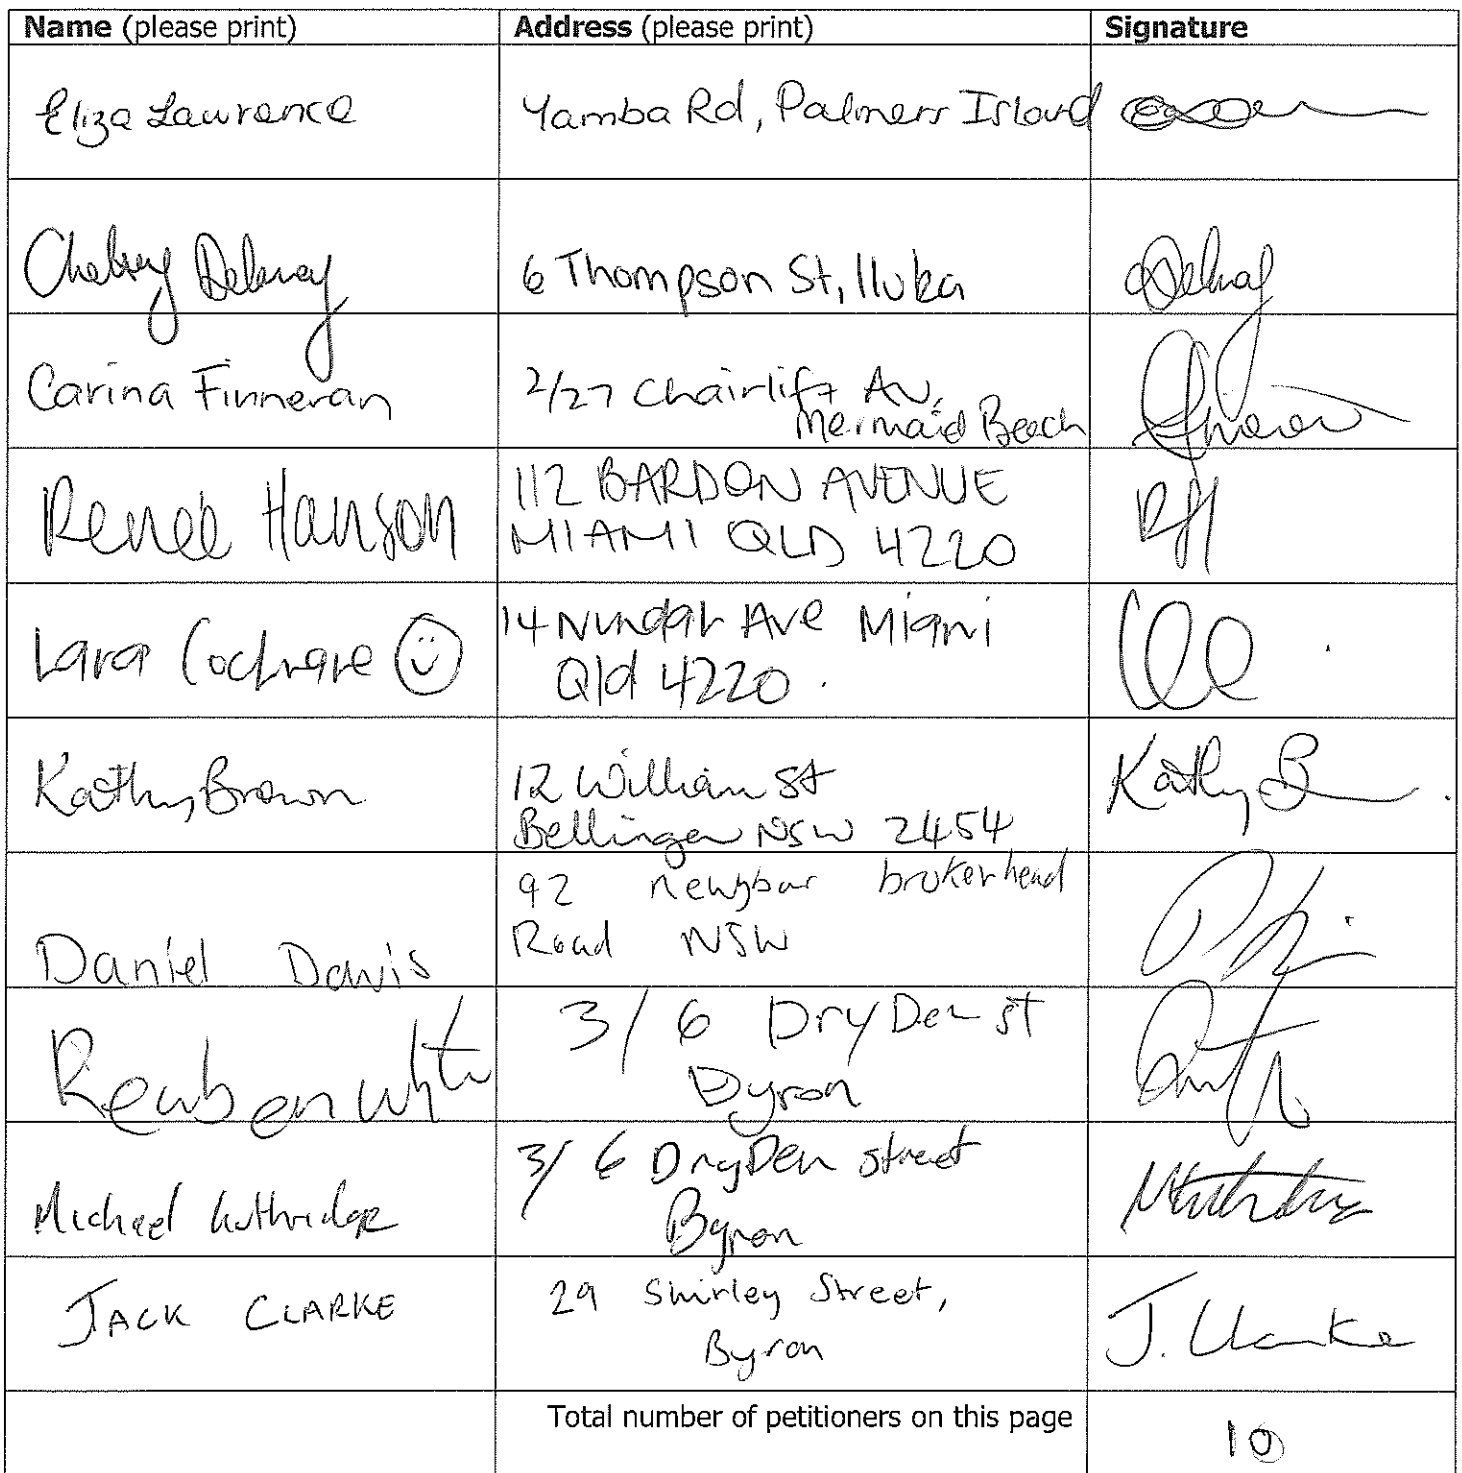 Name (please print) Address (please print) Signature
Eliza Lawrence Yamba Rd, Palmers Island
Chelsey Delaney 6 Thompson St, Iluka
Carina Finneran 2/27 Chairlift Av,
Mermaid Beach
Reneé Hanson 112 BARDON AVENUE RH
MIAMI QLD 4220
Lara Cochrane 14 Nundah Ave Miami
Qld 4220.
Kathy Brown 12 William St Kathy B
Bellingen NSW 2454
Daniel Davis 92 newybar brokenhead
Road NSW
Reuben 3/6 DryDen st
Byron
Michael 3/6 DryDen street
Byron
JACK CLARKE 29 Shirley Street, J. Clarke
Byron
Total number of petitioners on this page 10